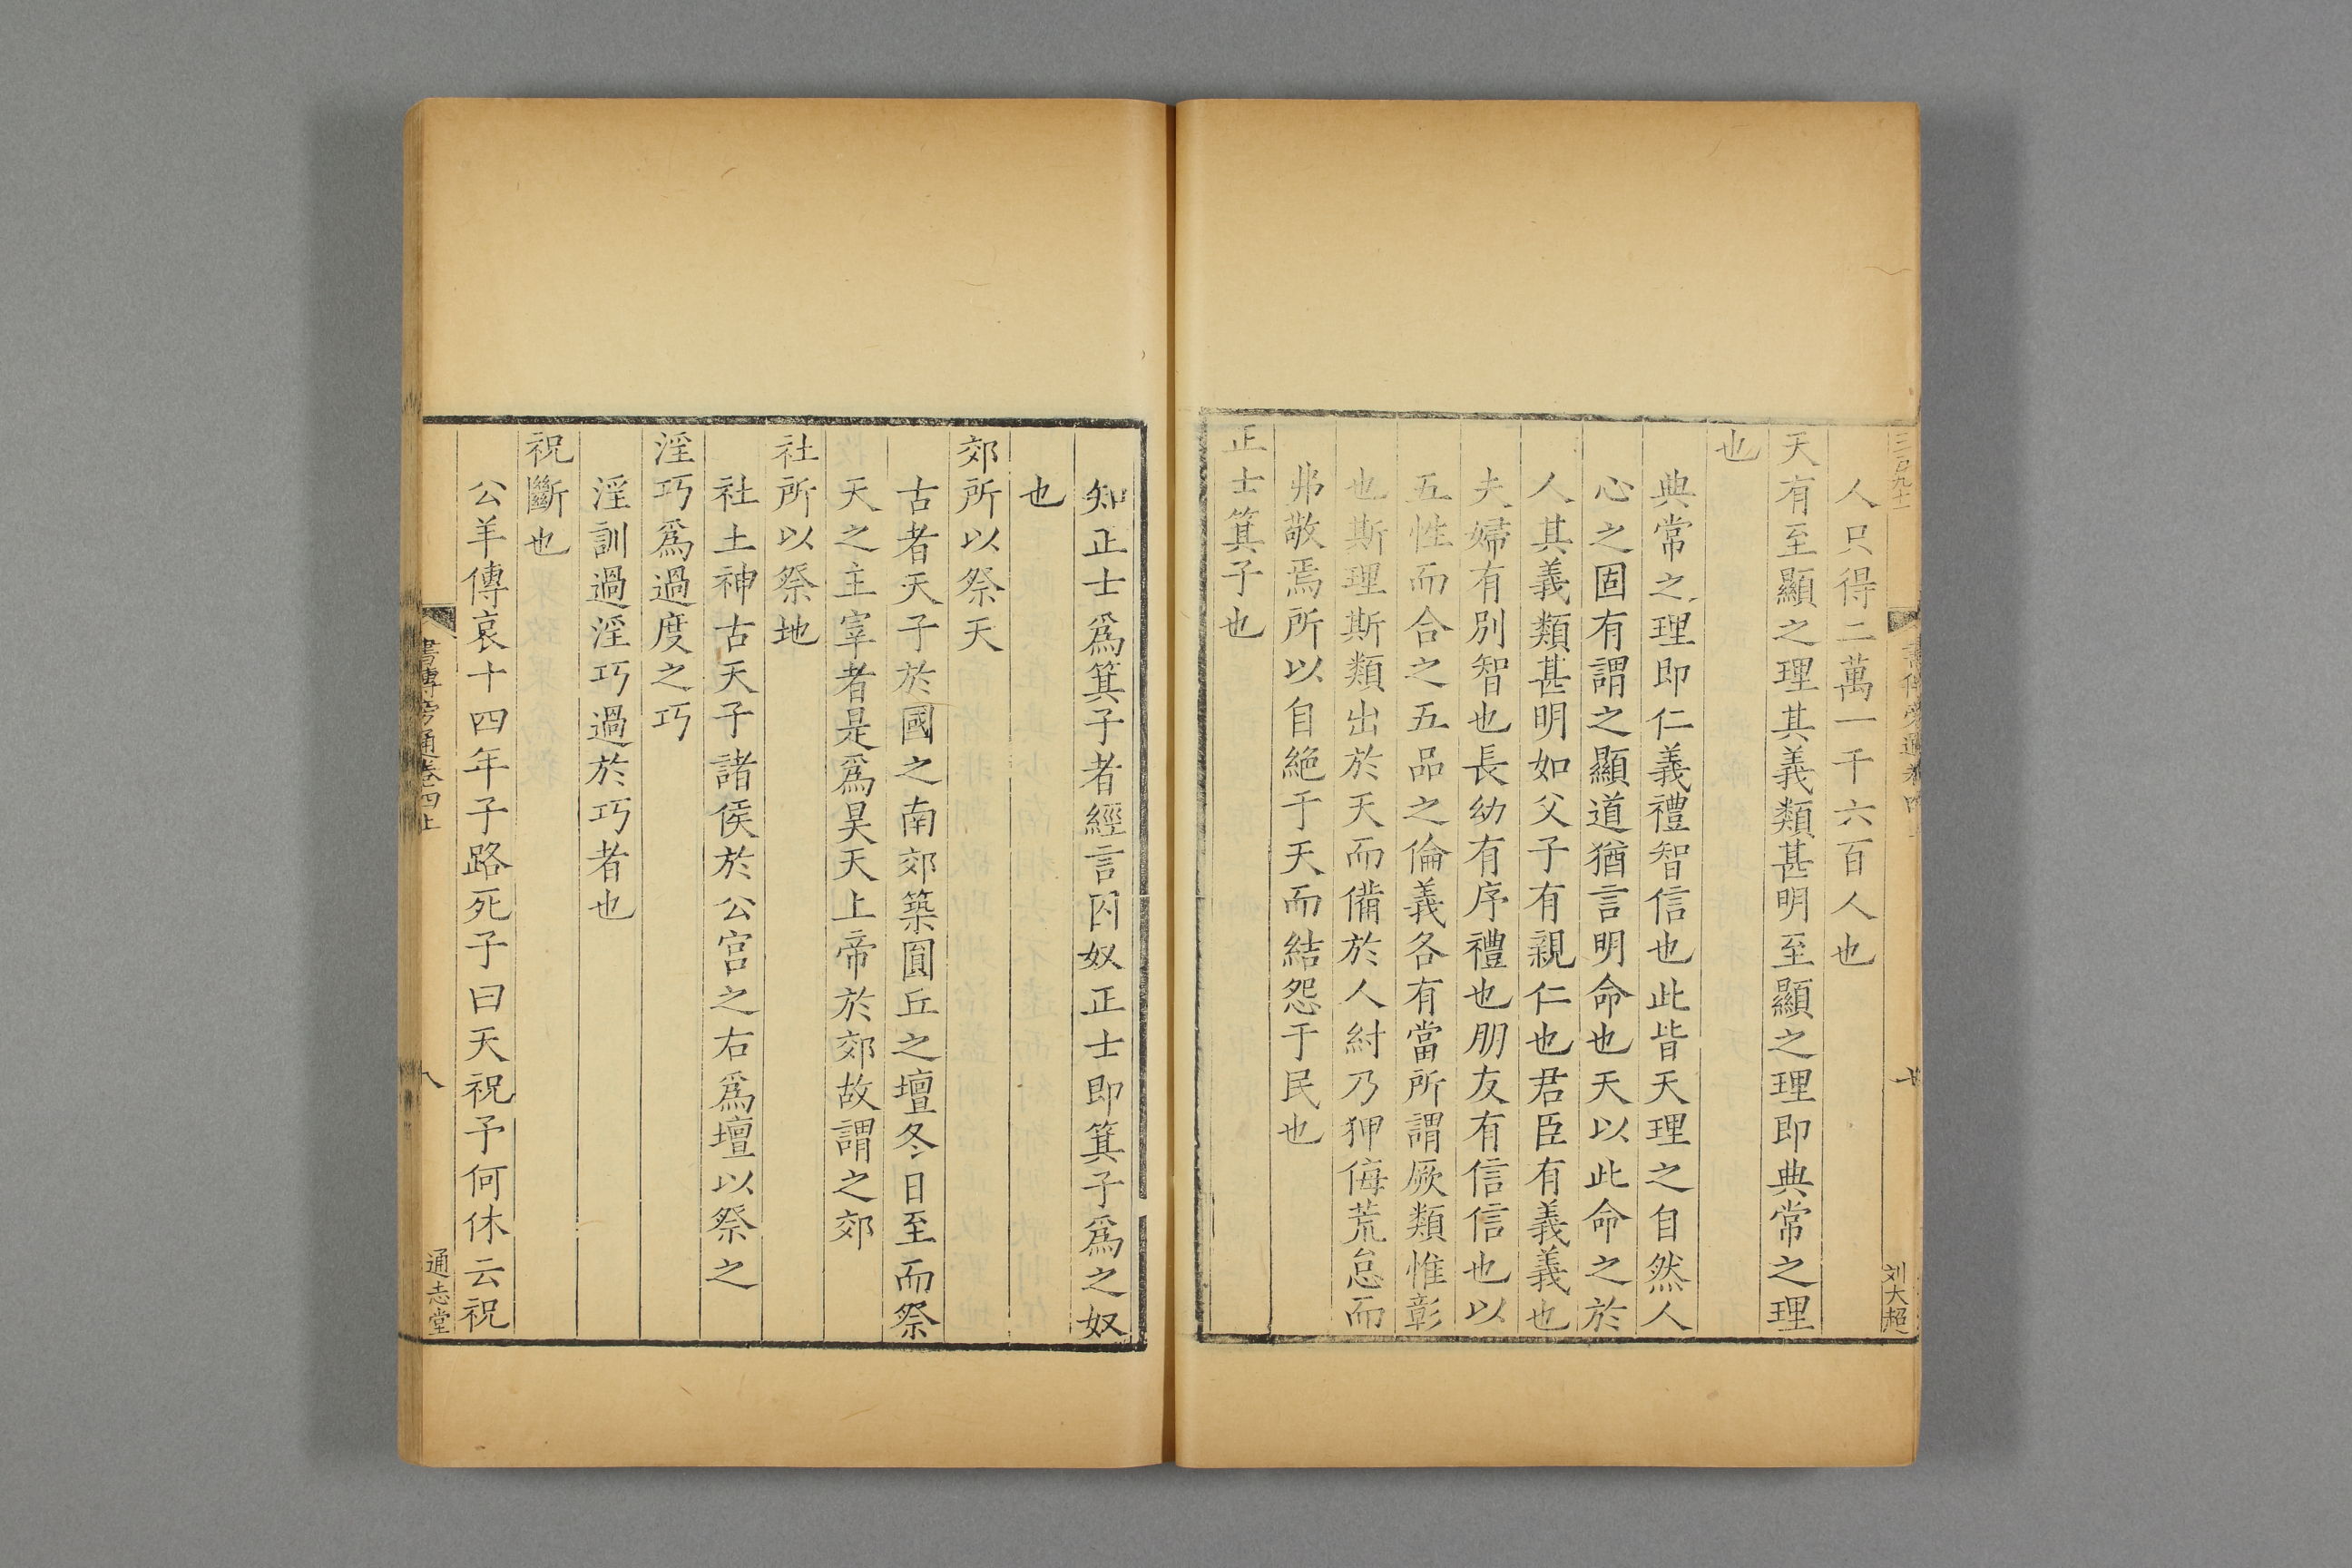 人只得二萬一千六百人也
天有至顯之理其義類甚明至顯之理即典常之理
也
典常之理即仁義禮智信也此皆天理之自然人
心之固有謂之顯道猶言明命也天以此命之於
人其義類甚明如父子有親仁也君臣有義義也
夫婦有別智也長幼有序禮也朋友有信信也以
五性而合之五品之倫義各有當所謂厥類惟彰
也斯理斯類出於天而備於人紂乃狎侮荒怠而
弗敬焉所以自絕于天而結怨于民也
正士箕子也
刘大超
知正士爲箕子者經言囚奴正士即箕子爲之奴
也
郊所以祭天
古者天子於國之南郊築圓丘之壇冬日至而祭
天之主宰者是爲昊天上帝於郊故謂之郊
社所以祭地
社土神古天子諸侯於公宮之右爲壇以祭之
淫巧爲過度之巧
淫訓過淫巧過於巧者也
祝斷也
公羊傳哀十四年子路死子曰天祝予何休云祝
書傳旁通卷四上
八
通志堂